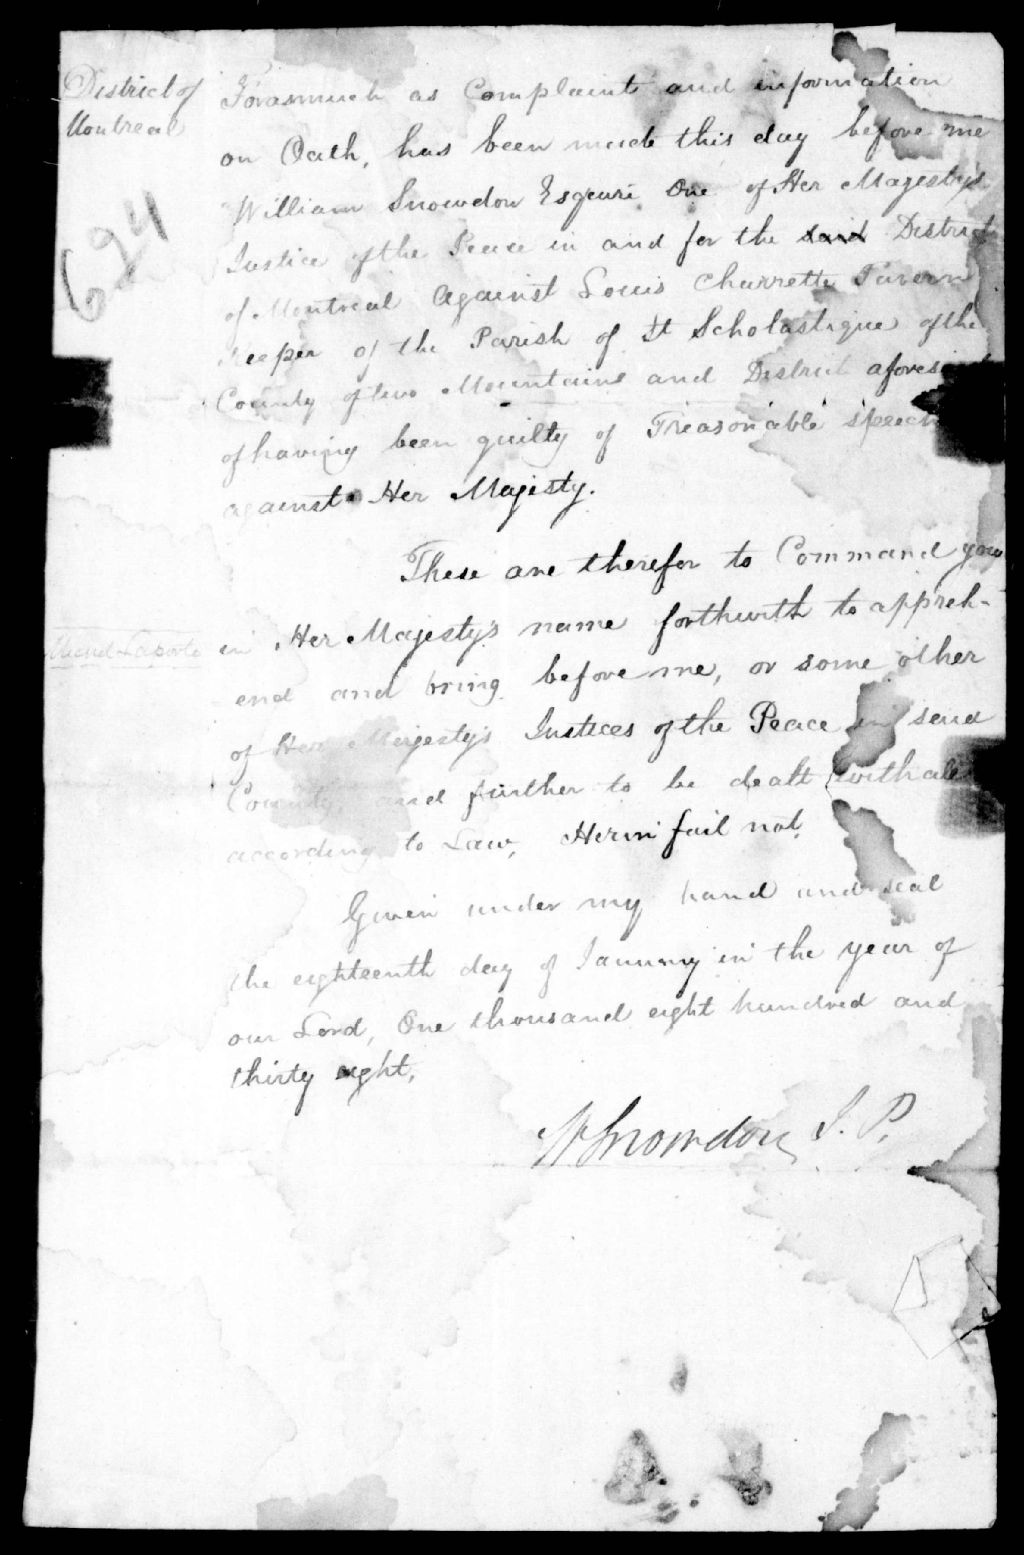 District of
Montreal
624
Forasmuch as Complaint and information
on Oath, has been made this day before me
William Snowdon Esquire One of Her Magesty's
Justice of the Peace in and for the said District
of Montreal Against Louis Charrette Tavern
Keeper of the Parish of St Scholastique of the
County of two Mountains and District aforesaid
of having been guilty of Treasonable speech
against Her Majesty.
These are therefor to Command you
in Her Majesty's name forthwith to appreh-
end and bring before me, or some other
of Her Majesty's Justices of the Peace in said
County, and further to be dealt withall
according to Law, Herin fail not.
Given under my hand and seal
the eighteenth day of January in the year of
our Lord, One thousand eight hundred and
thirty eight,
W Snowdon J. P.
Laporte